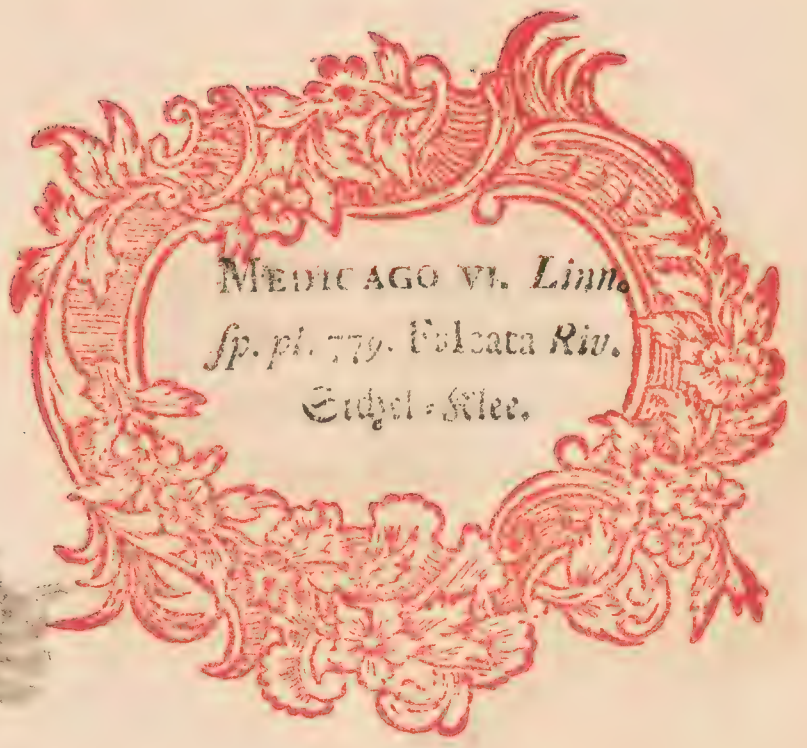 MEDICAGO VI. Linn.
ſp. pl. 779. Falcata Riv.
Sichel-Klee.